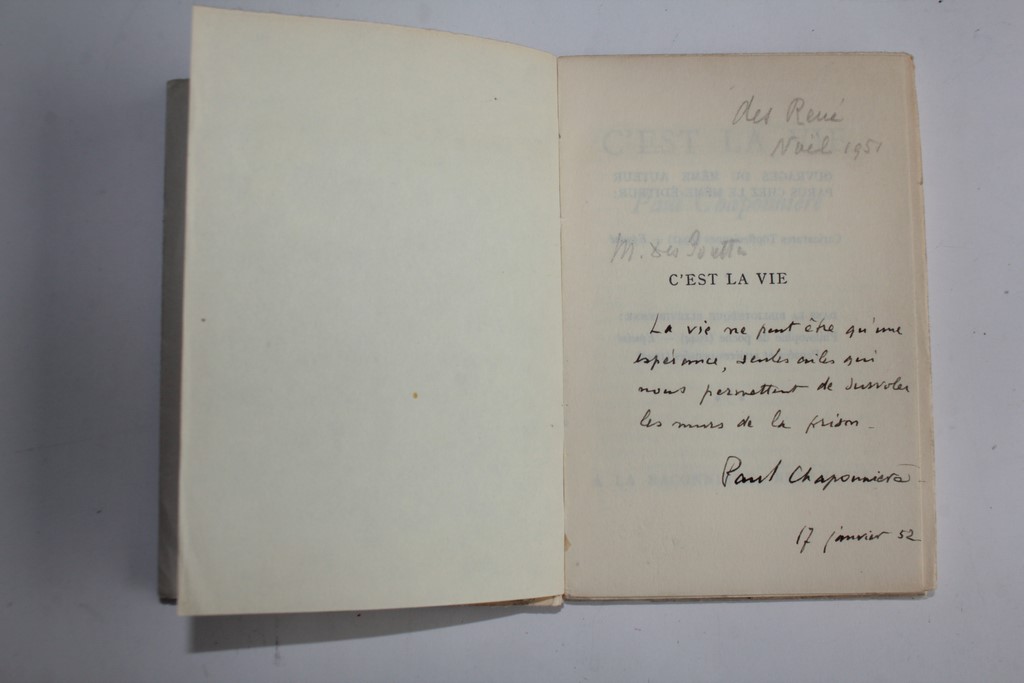 des René
Noël 1951
M. des
C'EST LA VIE
La vie ne peut être qu'une
espérance, seules ailes qui
nous permettent de survoler
les murs de la prison.
Paul Chaponnière
17 janvier 52